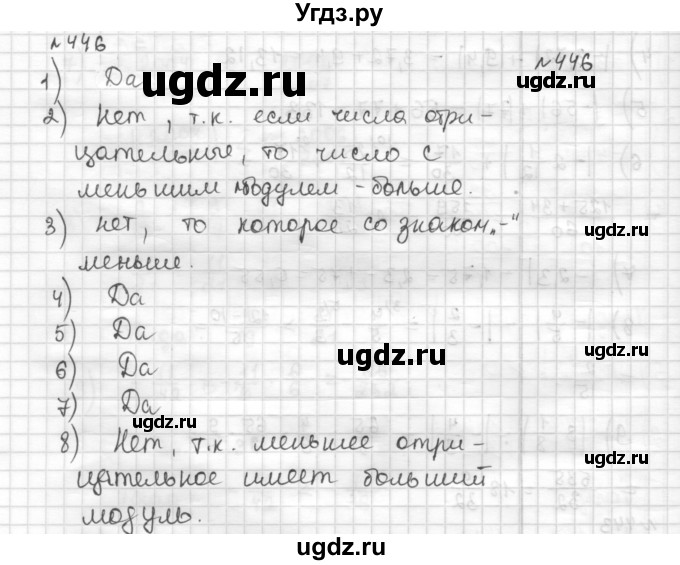 Угдз.ру
№446
№446
1) Да
ugdz.ru
2) Нет, т.к. если числа отри-
цательные, то число с
меньшим модулем - больше.
ugdz.ru
3) нет, то которое со знаком „-“
меньше.
ugdz.ru
4) Да
5) Да
ugdz.ru
6) Да
7) Да
ugdz.ru
8) Нет, т.к. меньшее отри-
цательное имеет больший
ugdz.ru
модуль.
ugdz.ru